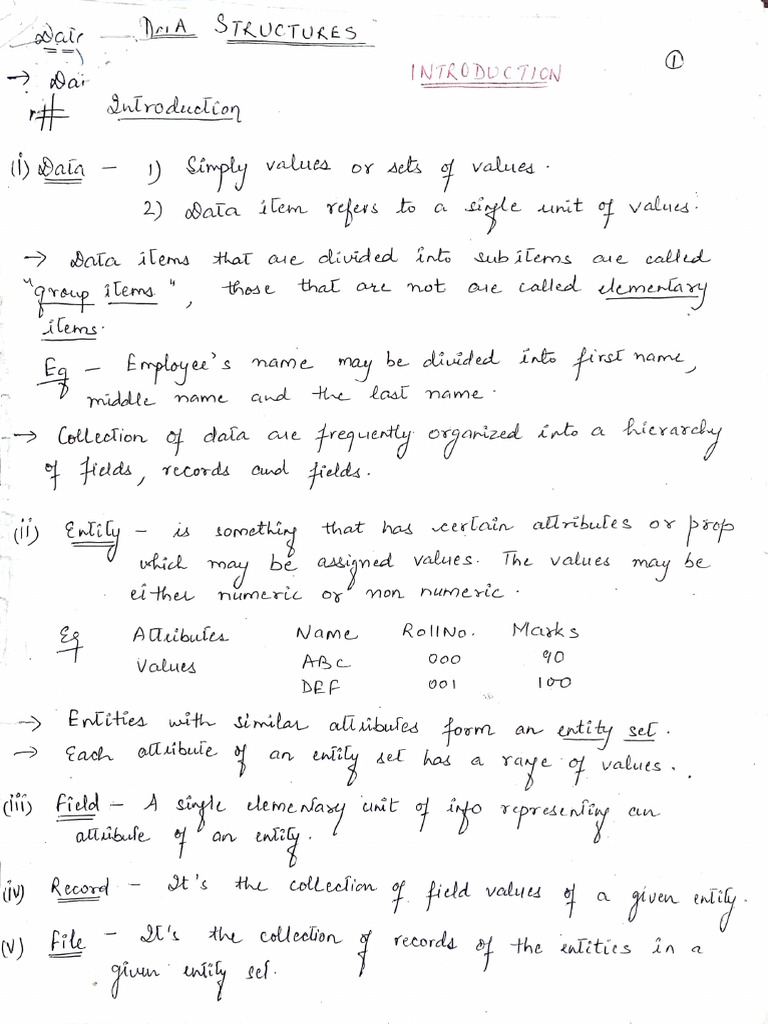 DATA STRUCTURES
INTRODUCTION
①
→ Da
# Introduction
(i) Data – 1) Simply values or sets of values.
2) Data item refers to a single unit of values.
→ Data items that are divided into subitems are called
"group items", those that are not are called elementary
items.
Eg – Employee's name may be divided into first name,
middle name and the last name.
→ Collection of data are frequently organized into a hierarchy
of fields, records and fields.
(ii) Entity – is something that has certain attributes or prop
which may be assigned values. The values may be
either numeric or non numeric.
Eg Attributes Name RollNo. Marks
Values ABC 000 90
DEF 001 100
→ Entities with similar attributes form an entity set.
→ Each attribute of an entity set has a range of values.
(iii) Field – A single elementary unit of info representing an
attribute of an entity.
(iv) Record – It's the collection of field values of a given entity.
(v) File – It's the collection of records of the entities in a
given entity set.